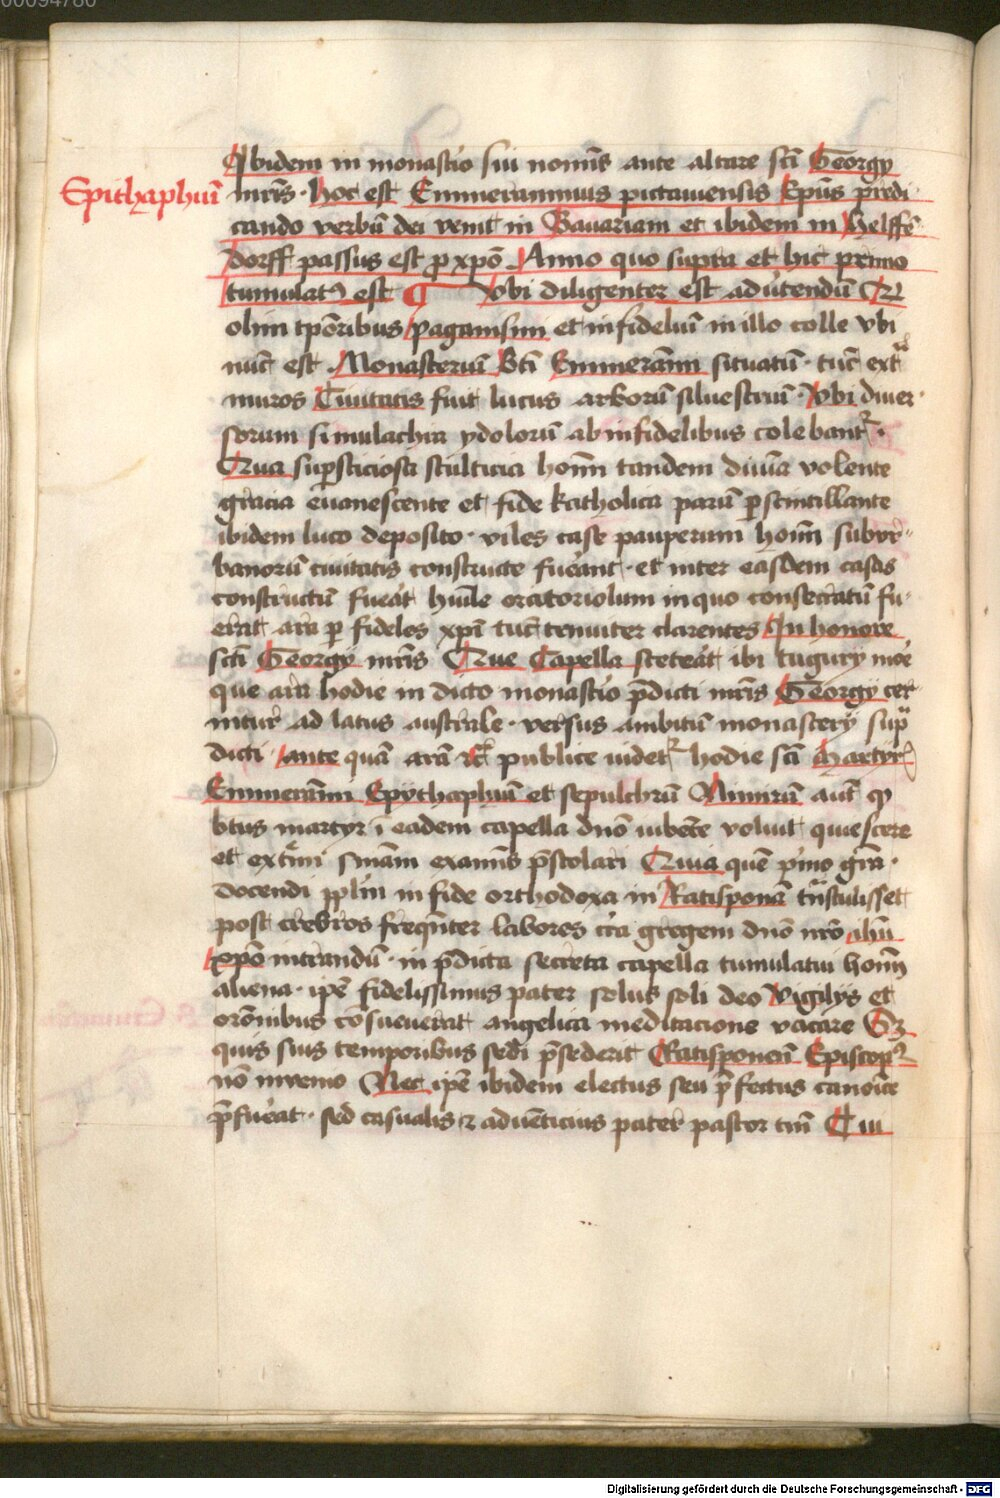 00094780
Ibidem in monast'io sui nomīs ante altare scī Georgy
Epithaphiū
mrīs · hoc est Emmerammus pictauiensis Epūs predi
cando verbū dei venit in Bauariam et ibidem in helffē
dorff passus est p xpō Anno quo supra et hic primo
tumulat9 est ¶ Vbi diligenter est aduertendū Q
olim tpōribus paganismi et infideliū in illo colle vbi
nūc est Monasteriū Btī Emmerāmi situatū · tūc extª
muros Ciuitatis fuit lucus arborū siluestriū · Vbi diuer
sorum simulachra ydolorū ab infidelibus colebant² ·
Qua supsticiosa stulticia homī tandem diuīa volente
gracia euanescente et fide katholica parū pscintillante
ibidem luco deposito · viles case pauperum homī subvr
banorū ciuitatis constructe fuerant · et inter easdem casas
constructū fuerat humīle oratoriolum in quo consecratū fu
erat ara p fideles xpī tūc tenuiter clarentes In honore
scī Georgy mrīs Que Capella steterat ibi tugury more
que ara hodie in dicto monast'io pdicti mrīs Georgy cer
nitur ad latus australe · versus ambitū monastery supª
dicti · ante quā arā et publice videt² hodie scī Martyr
Emmerāmi Epythaphiū et sepulchrū Nimirū aut q
btus martyr ī eadem capella dnō iubēte voluit quiescere
et extīmi smām examīs pstolari Quia quē pmo grā ·
docendi pplm in fide orthodoxa in Ratisponā trªnstulisset
post crebros freqnter labores cra gregem dnō nrō ihū
xpō intrandū · in pdicta secreta capella tumulatui homī
aliena · ipē fidelissimus pater solus soli deo vigilys et
orōnibus cōsueuerat angelica meditacione vacare Sz
quis suis temporibus sedi psederit Ratisponen Episcop9
nō inuenio Nec ipē ibidem electus seu pfectus canoīce
pfuerat · sed casualis et aduēticius pater pastor tm Cui
Digitalisierung gefördert durch die Deutsche Forschungsgemeinschaft - DFG